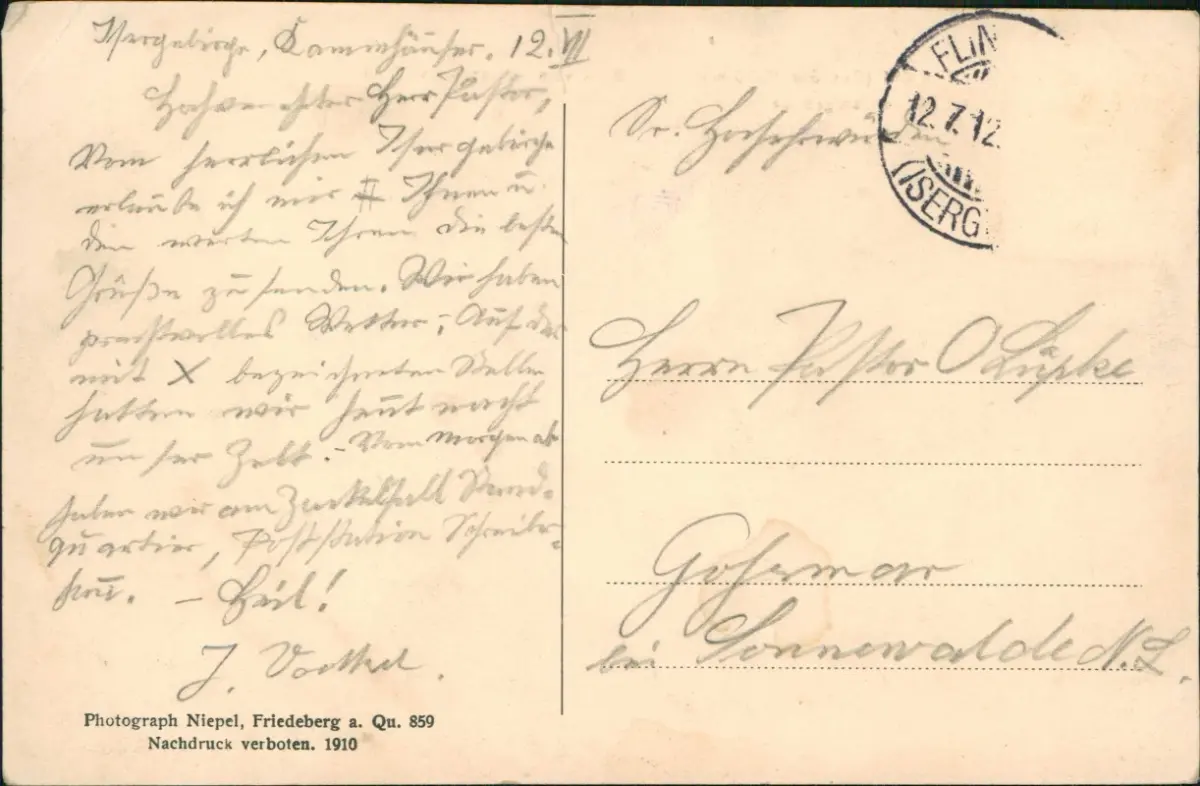 Isergebirge, Kammhäuser. 12. VII
Hochverehrter Herr Pastor,
Vom herrlichen Isergebirge
erlaube ich mir Ihnen u.
den werten Ihren die besten
Grüße zu senden. Wir haben
prachtvolles Wetter; Auf der
mit X bezeichneten Stelle
hatten wir heut nacht
unser Zelt. – Vom Morgen ab
haben wir am Zackelfall Stand-
quartier, Poststation Schreiber-
hau. – Heil!
J.
Photograph Niepel, Friedeberg a. Qu. 859
Nachdruck verboten. 1910
FLIN
12.7.12.
(ISERG
Sr. Hochehrwürden
Herrn Pastor O Lüpke
Gosmar
bei Sonnewalde N.L.